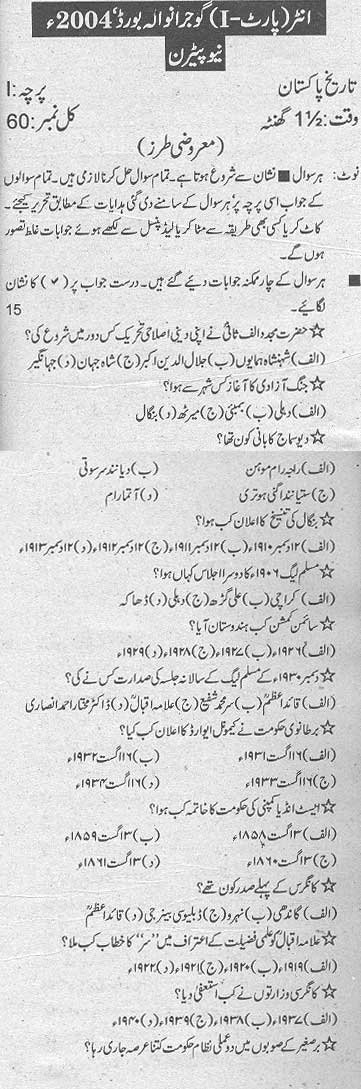 انٹر (پارٹ-I) گوجرانوالہ بورڈ، 2004ء
نیو پیٹرن
تاریخ پاکستان پرچہ: I
وقت: 1½ گھنٹہ کل نمبر: 60
(معروضی طرز)
نوٹ: ہر سوال ■ نشان سے شروع ہوتا ہے۔ تمام سوال حل کرنا لازمی ہیں۔ تمام سوالوں
کے جواب اسی پرچہ پر ہر سوال کے سامنے دی گئی ہدایات کے مطابق تحریر کیجئے۔
کاٹ کر یا کسی بھی طریقہ سے مٹا کر یا لیڈ پنسل سے لکھے ہوئے جوابات غلط تصور
ہوں گے۔
■ ہر سوال کے چار ممکنہ جوابات دیئے گئے ہیں۔ درست جواب پر (✓) کا نشان
لگائیے۔ 15
☆ حضرت مجدد الف ثانیؒ نے اپنی دینی اصلاحی تحریک کس دور میں شروع کی؟
(الف) شہنشاہ ہمایوں (ب) جلال الدین اکبر (ج) شاہ جہان (د) جہانگیر
☆ جنگ آزادی کا آغاز کس شہر سے ہوا؟
(الف) دہلی (ب) بمبئی (ج) میرٹھ (د) بنگال
☆ دیو سماج کا بانی کون تھا؟
(الف) راجہ رام موہن (ب) دیانند سرسوتی
(ج) ستیانند اگنی ہوتری (د) آتما رام
☆ بنگال کی تنسیخ کا اعلان کب ہوا؟
(الف) ۱۲ دسمبر ۱۹۱۰ء (ب) ۱۲ دسمبر ۱۹۱۱ء (ج) ۱۲ دسمبر ۱۹۱۲ء (د) ۱۲ دسمبر ۱۹۱۳ء
☆ مسلم لیگ ۱۹۰۶ء کا دوسرا اجلاس کہاں ہوا؟
(الف) کراچی (ب) علی گڑھ (ج) دہلی (د) ڈھاکہ
☆ سائمن کمشن کب ہندوستان آیا؟
(الف) ۱۹۲۶ء (ب) ۱۹۲۷ء (ج) ۱۹۲۸ء (د) ۱۹۲۹ء
☆ دسمبر ۱۹۳۰ء کے مسلم لیگ کے سالانہ جلسہ کی صدارت کس نے کی؟
(الف) قائداعظمؒ (ب) سر محمد شفیع (ج) علامہ اقبالؒ (د) ڈاکٹر مختار احمد انصاری
☆ برطانوی حکومت نے کمیونل ایوارڈ کا اعلان کب کیا؟
(الف) ۱۶ اگست ۱۹۳۱ء (ب) ۱۶ اگست ۱۹۳۲ء
(ج) ۱۶ اگست ۱۹۳۳ء (د) ۱۶ اگست ۱۹۳۴ء
☆ ایسٹ انڈیا کمپنی کی حکومت کا خاتمہ کب ہوا؟
(الف) ۳ اگست ۱۸۵۸ء (ب) ۳ اگست ۱۸۵۹ء
(ج) ۳ اگست ۱۸۶۰ء (د) ۳ اگست ۱۸۶۱ء
☆ کانگرس کے پہلے صدر کون تھے؟
(الف) گاندھی (ب) نہرو (ج) ڈبلیو سی بینرجی (د) قائداعظمؒ
☆ علامہ اقبالؒ کو علمی فضیلت کے اعتراف میں "سر" کا خطاب کب ملا؟
(الف) ۱۹۱۹ء (ب) ۱۹۲۰ء (ج) ۱۹۲۱ء (د) ۱۹۲۲ء
☆ کانگرسی وزارتوں نے کب استعفیٰ دیا؟
(الف) ۱۹۳۷ء (ب) ۱۹۳۸ء (ج) ۱۹۳۹ء (د) ۱۹۴۰ء
☆ برصغیر کے صوبوں میں دو عملی نظام حکومت کتنا عرصہ جاری رہا؟